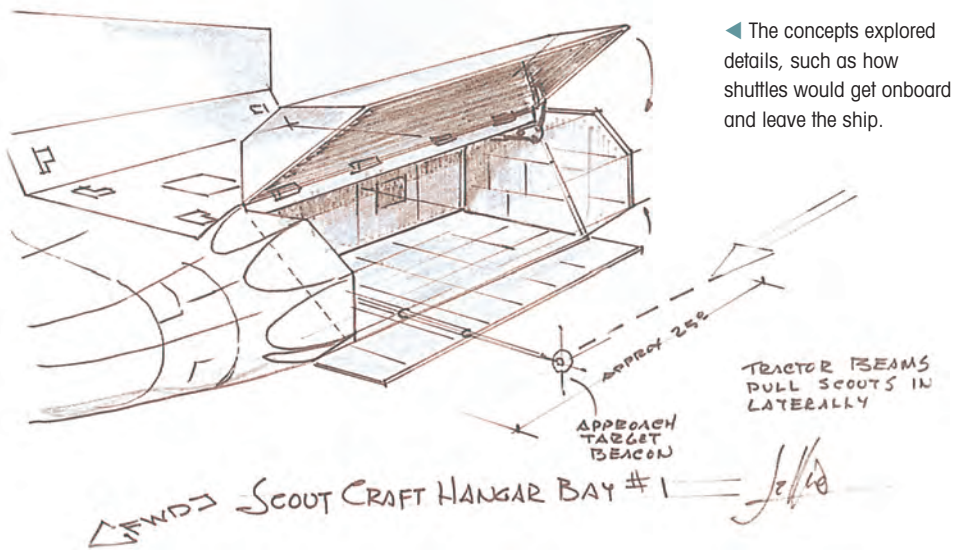 ◀ The concepts explored
details, such as how
shuttles would get onboard
and leave the ship.
TRACTOR BEAMS
PULL SCOUTS IN
LATERALLY
APPROX 25°
APPROACH
TARGET
BEACON
FWD SCOUT CRAFT HANGAR BAY #1